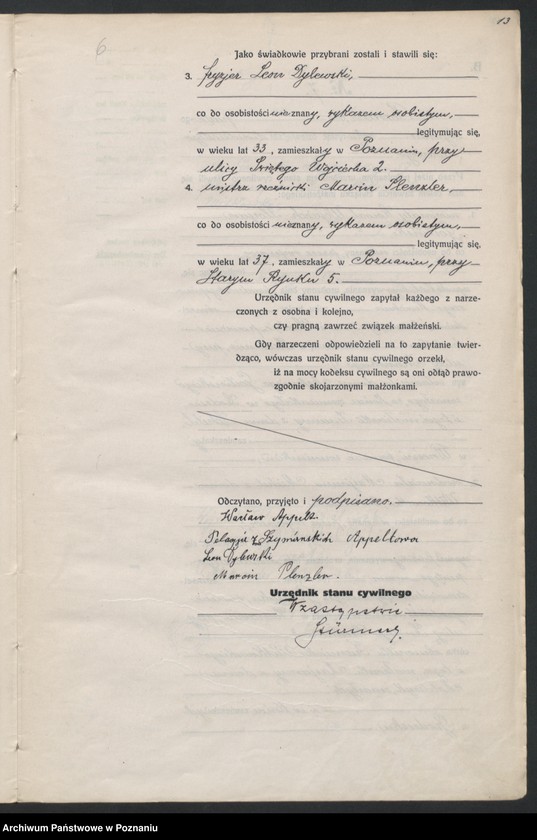 13
6
Jako świadkowie przybrani zostali i stawili się:
3. fryzjer Leon Dylewski,
co do osobistości nieznany, wykazem osobistym,
legitymując się,
w wieku lat 33, zamieszkały w Poznaniu, przy
ulicy Świętego Wojciecha 2.
4. mistrz rzeźnicki Marcin Plenzler,
co do osobistości nieznany, wykazem osobistym,
legitymując się,
w wieku lat 37, zamieszkały w Poznaniu, przy
Starym Rynku 5.
Urzędnik stanu cywilnego zapytał każdego z narze-
czonych z osobna i kolejno,
czy pragną zawrzeć związek małżeński.
Gdy narzeczeni odpowiedzieli na to zapytanie twier-
dząco, wówczas urzędnik stanu cywilnego orzekł,
iż na mocy kodeksu cywilnego są oni odtąd prawo-
zgodnie skojarzonymi małżonkami.
Odczytano, przyjęto i podpisano.
Wacław Appelt
Pelagja z Szymańskich Appeltowa
Leon Dylewski
Marcin Plenzler.
Urzędnik stanu cywilnego
W zastępstwie
Archiwum Państwowe w Poznaniu